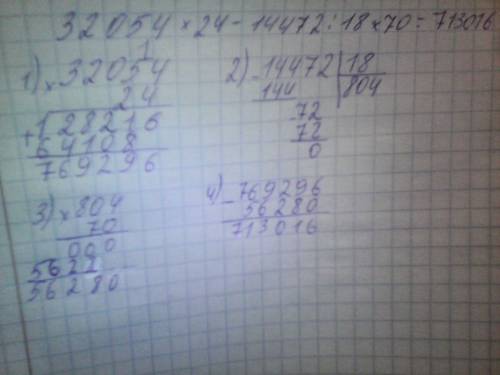 32054 × 24 - 14472 : 18 × 70 = 713016
1) × 32054
24
+ 128216
64108
769296
2) - 14472 | 18
144 | 804
72
72
0
3) × 804
70
000
5628
56280
4) - 769296
56280
713016